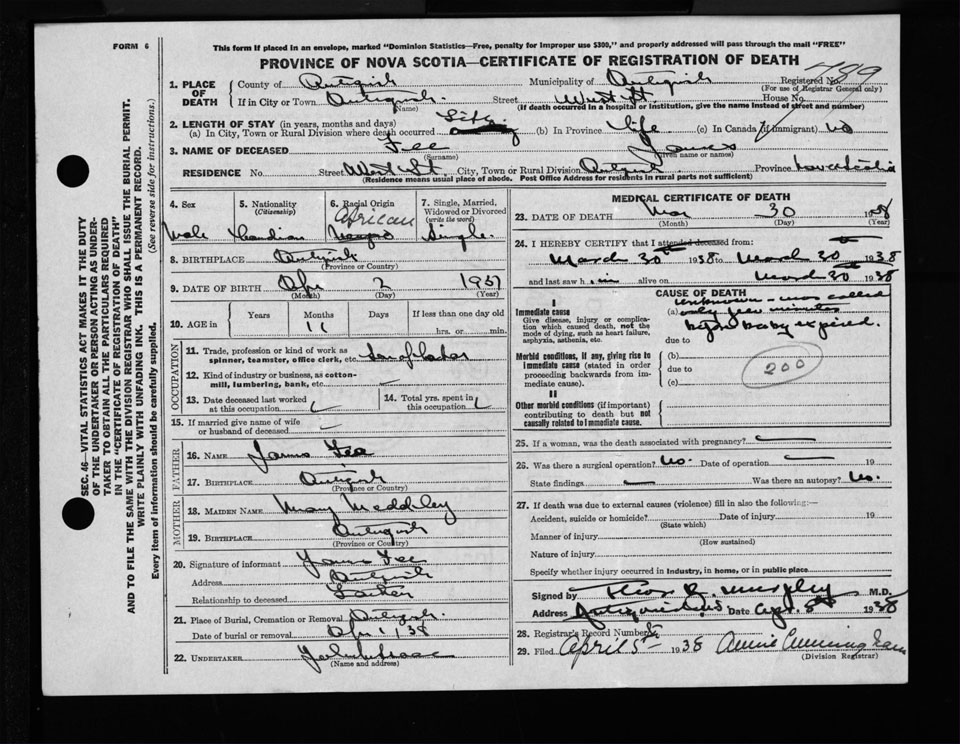 FORM 6
This form if placed in an envelope, marked "Dominion Statistics—Free, penalty for improper use $300," and properly addressed will pass through the mail "FREE"
PROVINCE OF NOVA SCOTIA—CERTIFICATE OF REGISTRATION OF DEATH
1. PLACE OF DEATH County of Antigonish Municipality of Antigonish Registered No. 789
(For use of Registrar General only)
If in City or Town Antigonish Street West St. House No.
(Name) (If death occurred in a hospital or institution, give the name instead of street and number)
2. LENGTH OF STAY (in years, months and days)
(a) In City, Town or Rural Division where death occurred Life (b) In Province life (c) In Canada (if immigrant) no
3. NAME OF DECEASED Fee James
(Surname) (Given name or names)
RESIDENCE No. Street West St. City, Town or Rural Division Antigonish Province Nova Scotia
(Residence means usual place of abode. Post Office Address for residents in rural parts not sufficient)
4. Sex Male
5. Nationality (Citizenship) Canadian
6. Racial Origin African Negro
7. Single, Married, Widowed or Divorced (write the word) Single
8. BIRTHPLACE Antigonish
(Province or Country)
9. DATE OF BIRTH Apr 2 1937
(Month) (Day) (Year)
10. AGE in Years Months Days If less than one day old
11 hrs. or min.
OCCUPATION
11. Trade, profession or kind of work as spinner, teamster, office clerk, etc.
12. Kind of industry or business, as cotton-mill, lumbering, bank, etc. —
13. Date deceased last worked at this occupation
14. Total yrs. spent in this occupation
15. If married give name of wife or husband of deceased —
FATHER
16. NAME James Fee
17. BIRTHPLACE Antigonish
(Province or Country)
MOTHER
18. MAIDEN NAME Mary
19. BIRTHPLACE Antigonish
(Province or Country)
20. Signature of informant James Fee
Address Antigonish
Relationship to deceased Father
21. Place of Burial, Cremation or Removal Antigonish
Date of burial or removal Apr 1, 38
22. UNDERTAKER
(Name and address)
MEDICAL CERTIFICATE OF DEATH
23. DATE OF DEATH Mar 30 1938
(Month) (Day) (Year)
24. I HEREBY CERTIFY that I attended deceased from:
March 30th 1938 to March 30th 1938
and last saw him alive on March 30th 1938
CAUSE OF DEATH
I
Immediate cause
Give disease, injury or complication which caused death, not the mode of dying, such as heart failure, asphyxia, asthenia, etc.
(a) unknown - was called
only few minutes
before baby expired.
due to
Morbid conditions, if any, giving rise to immediate cause (stated in order proceeding backwards from immediate cause).
(b)
due to
(c)
200
II
Other morbid conditions (if important) contributing to death but not causally related to immediate cause.
25. If a woman, was the death associated with pregnancy? —
26. Was there a surgical operation? No. Date of operation — 19
State findings — Was there an autopsy? No.
27. If death was due to external causes (violence) fill in also the following:—
Accident, suicide or homicide? Date of injury 19
(State which)
Manner of injury
(How sustained)
Nature of injury
Specify whether injury occurred in industry, in home, or in public place
Signed by Murphy M.D.
Address Antigonish Date Apr. 1938
28. Registrar's Record Number
29. Filed April 5 1938 Annie Cunningham
(Division Registrar)
SEC. 46—VITAL STATISTICS ACT MAKES IT THE DUTY
OF THE UNDERTAKER OR PERSON ACTING AS UNDER-
TAKER TO OBTAIN ALL THE PARTICULARS REQUIRED
IN THE "CERTIFICATE OF REGISTRATION OF DEATH"
AND TO FILE THE SAME WITH THE DIVISION REGISTRAR WHO SHALL ISSUE THE BURIAL PERMIT.
WRITE PLAINLY WITH UNFADING INK. THIS IS A PERMANENT RECORD.
Every item of information should be carefully supplied. (See reverse side for instructions.)